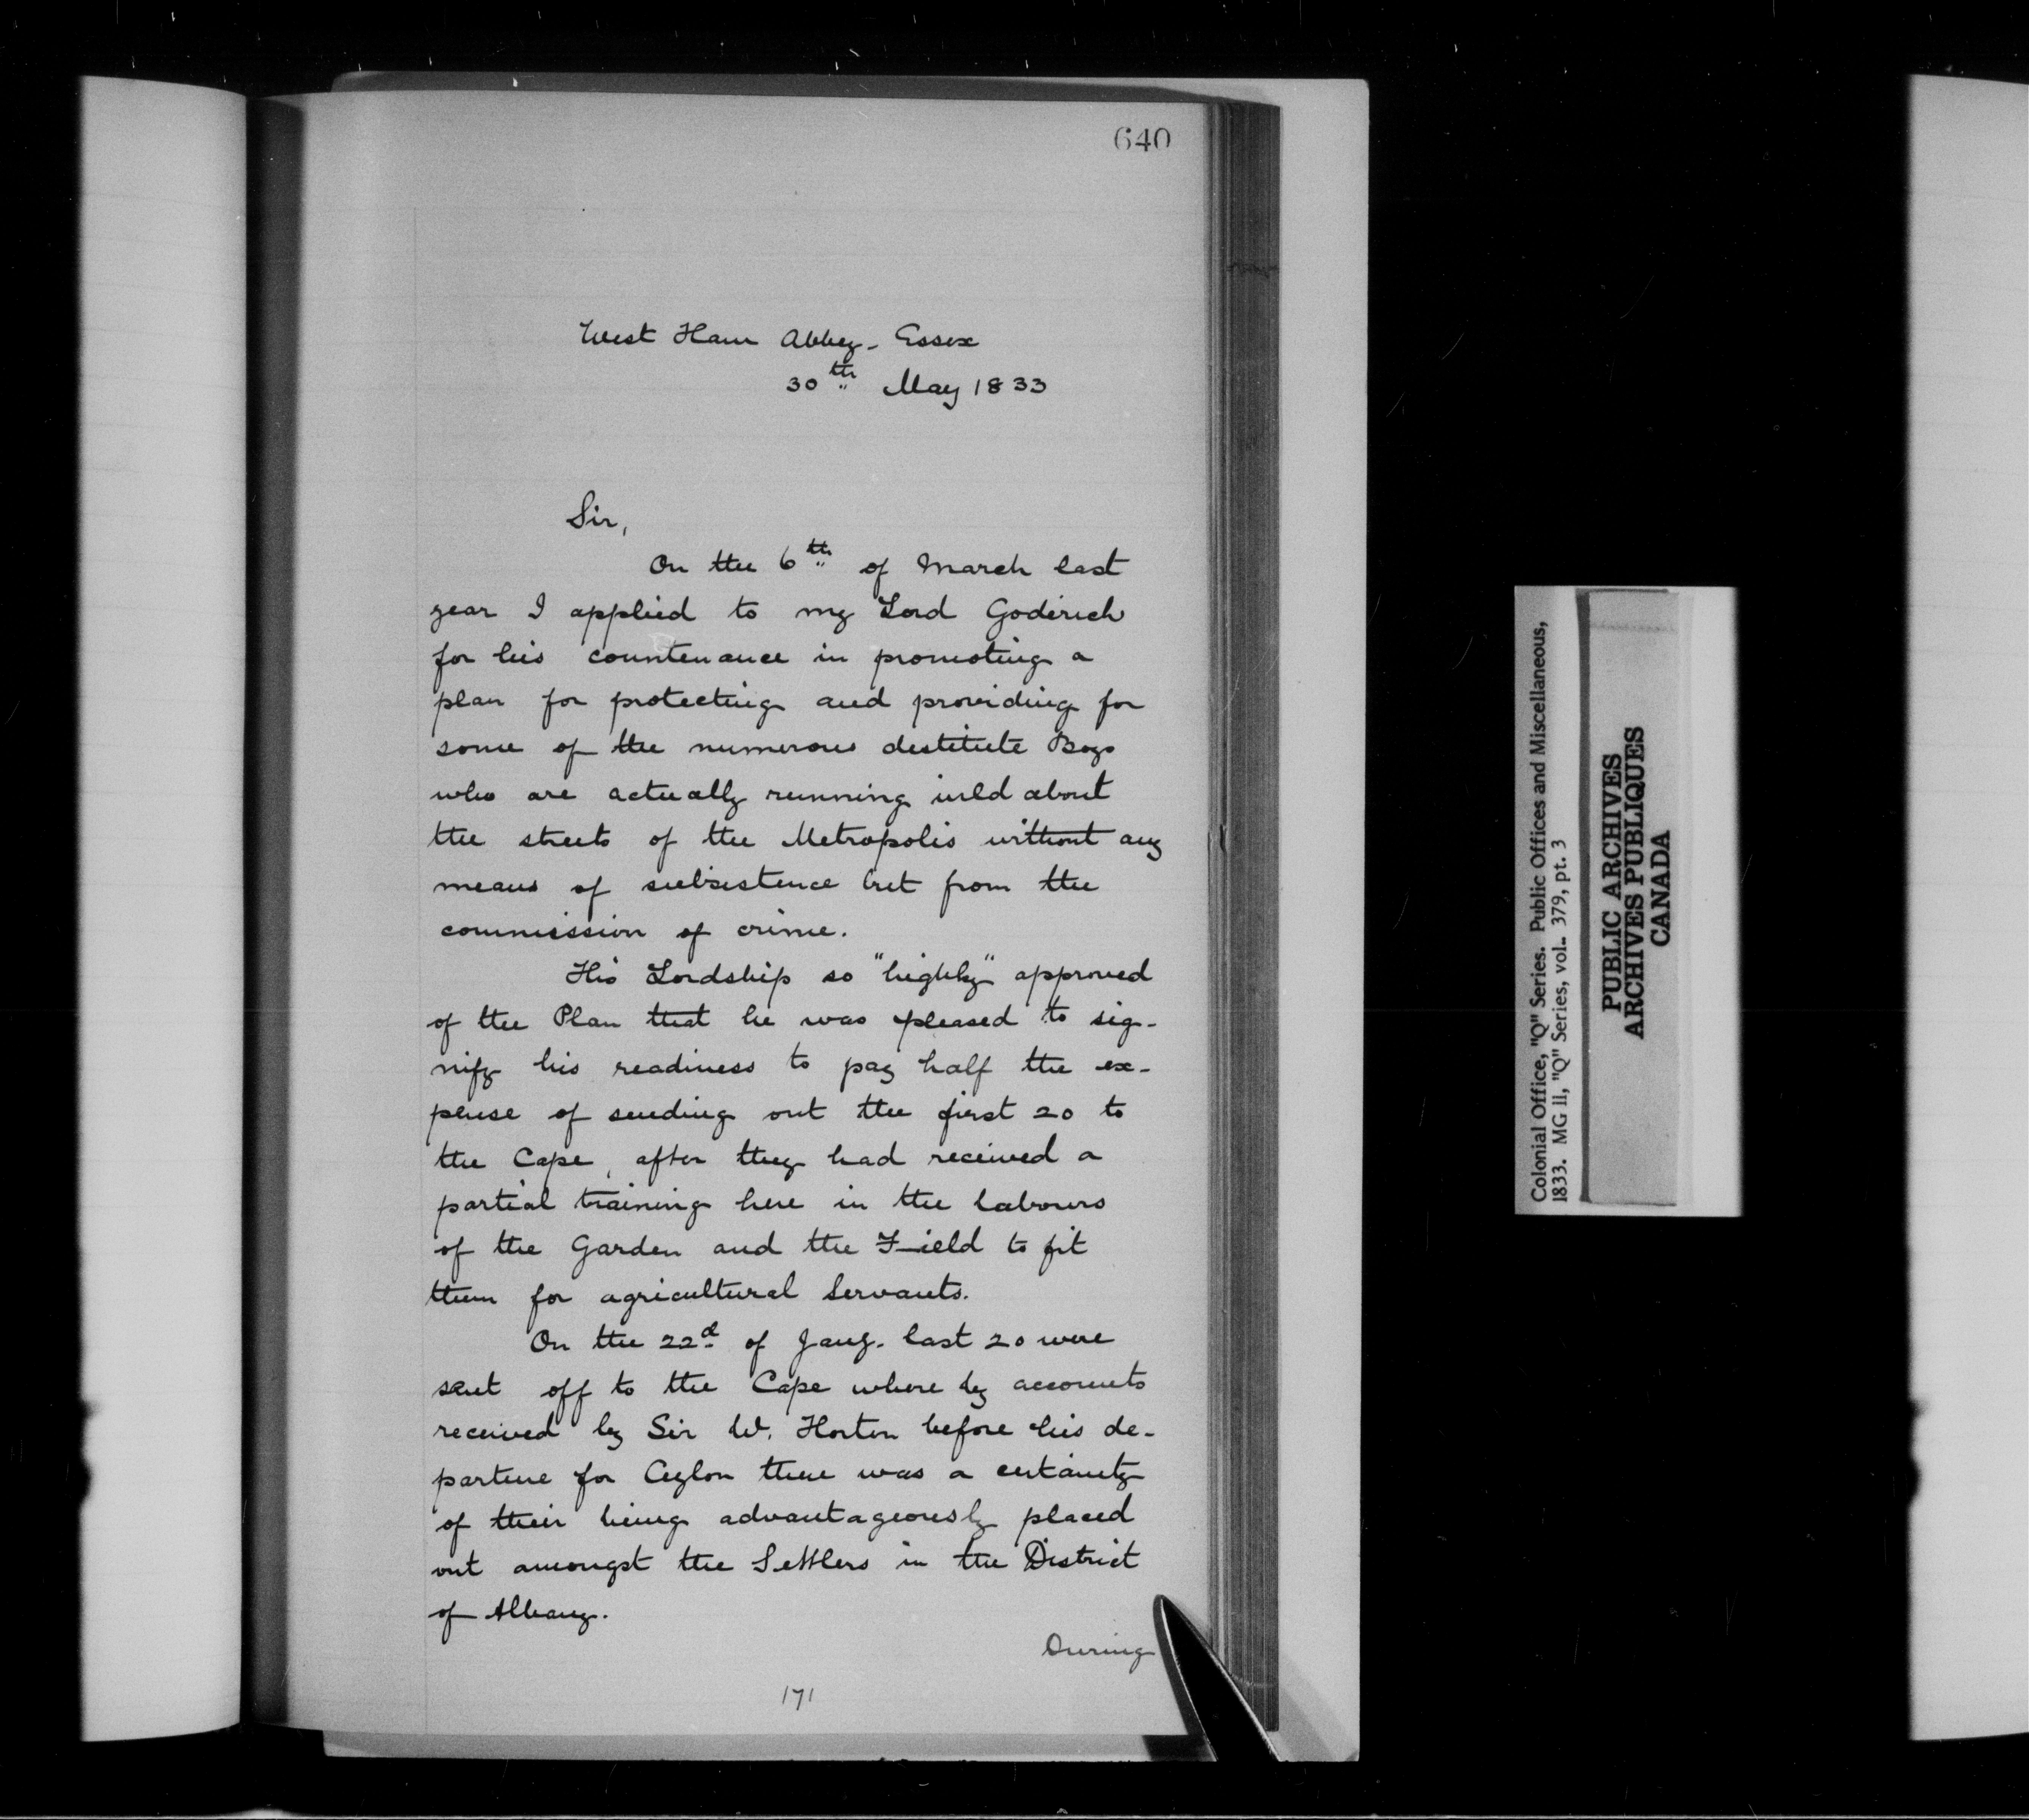 640
West Ham Abbey - Essex
30th May 1833
Sir,
On the 6th of March last
year I applied to my Lord Goderich
for his countenance in promoting a
plan for protecting and providing for
some of the numerous destitute Boys
who are actually running wild about
the streets of the Metropolis without any
means of subsistence but from the
commission of crime.
His Lordship so "highly" approved
of the Plan that he was pleased to sig-
nify his readiness to pay half the ex-
pense of sending out the first 20 to
the Cape, after they had received a
partial training here in the labours
of the Garden and the Field to fit
them for agricultural Servants.
On the 22d of Jany. last 20 were
sent off to the Cape where by accounts
received by Sir W. Horton before his de-
parture for Ceylon there was a certainty
of their being advantageously placed
out amongst the Settlers in the District
of Albany.
During
171
Colonial Office, "Q" Series. Public Offices and Miscellaneous,
1833. MG 11, "Q" Series, vol. 379, pt. 3
PUBLIC ARCHIVES
ARCHIVES PUBLIQUES
CANADA